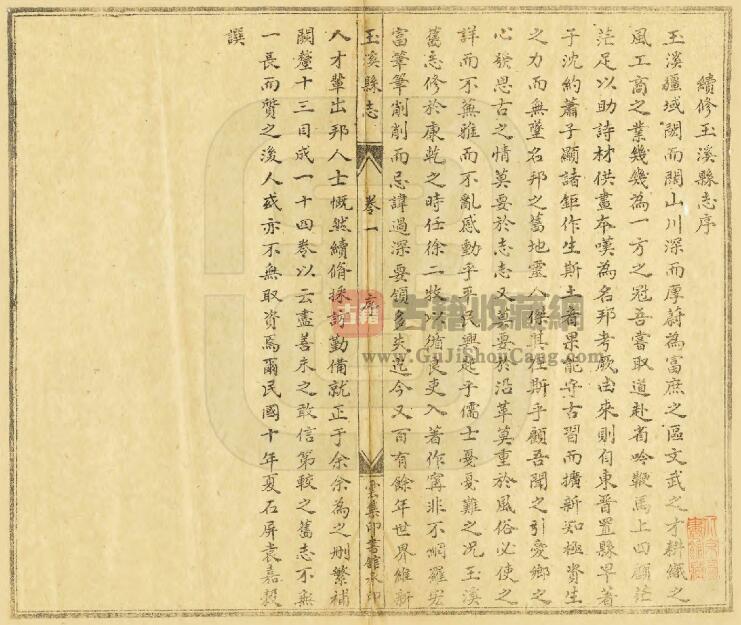 續修玉溪縣志序
玉溪疆域闊而闊山川深而厚蔚為富庶之區文武之才耕織之
風工商之業幾幾為一方之冠吾嘗取道赴省吟鞭馬上四顧茫
茫足以助詩材供畫本嘆為名邦考厥由來則自東晉置縣早著
子沈約蕭子顯諸鉅作生斯土者果能守古習而擴新知極資生
之力而無墜名邦之舊地靈人傑其在斯乎顧吾聞之引愛鄉之
心發思古之情莫要於志志又莫要於沿革莫重於風俗必使之
詳而不蕪雅而不亂感動乎平民興起乎儒士憂憂難之況玉溪
舊志修於康乾之時任徐二牧以循良吏入著作寓非不網羅宏
富筆筆削削而忌諱過深要領多失迄今又百有餘年世界維新
玉溪縣志
卷一
序
雲集印書館承印
人才輩出邦人士慨然續脩採訪勤備就正于余余為之刪繁補
闕釐十三目成一十四卷以云盡善未之敢信第較之舊志不無
一長而贊之後人或亦不無取資焉爾民國十年夏石屏袁嘉穀
譔
古籍
古籍收藏網
www.GuJiShouCang.com